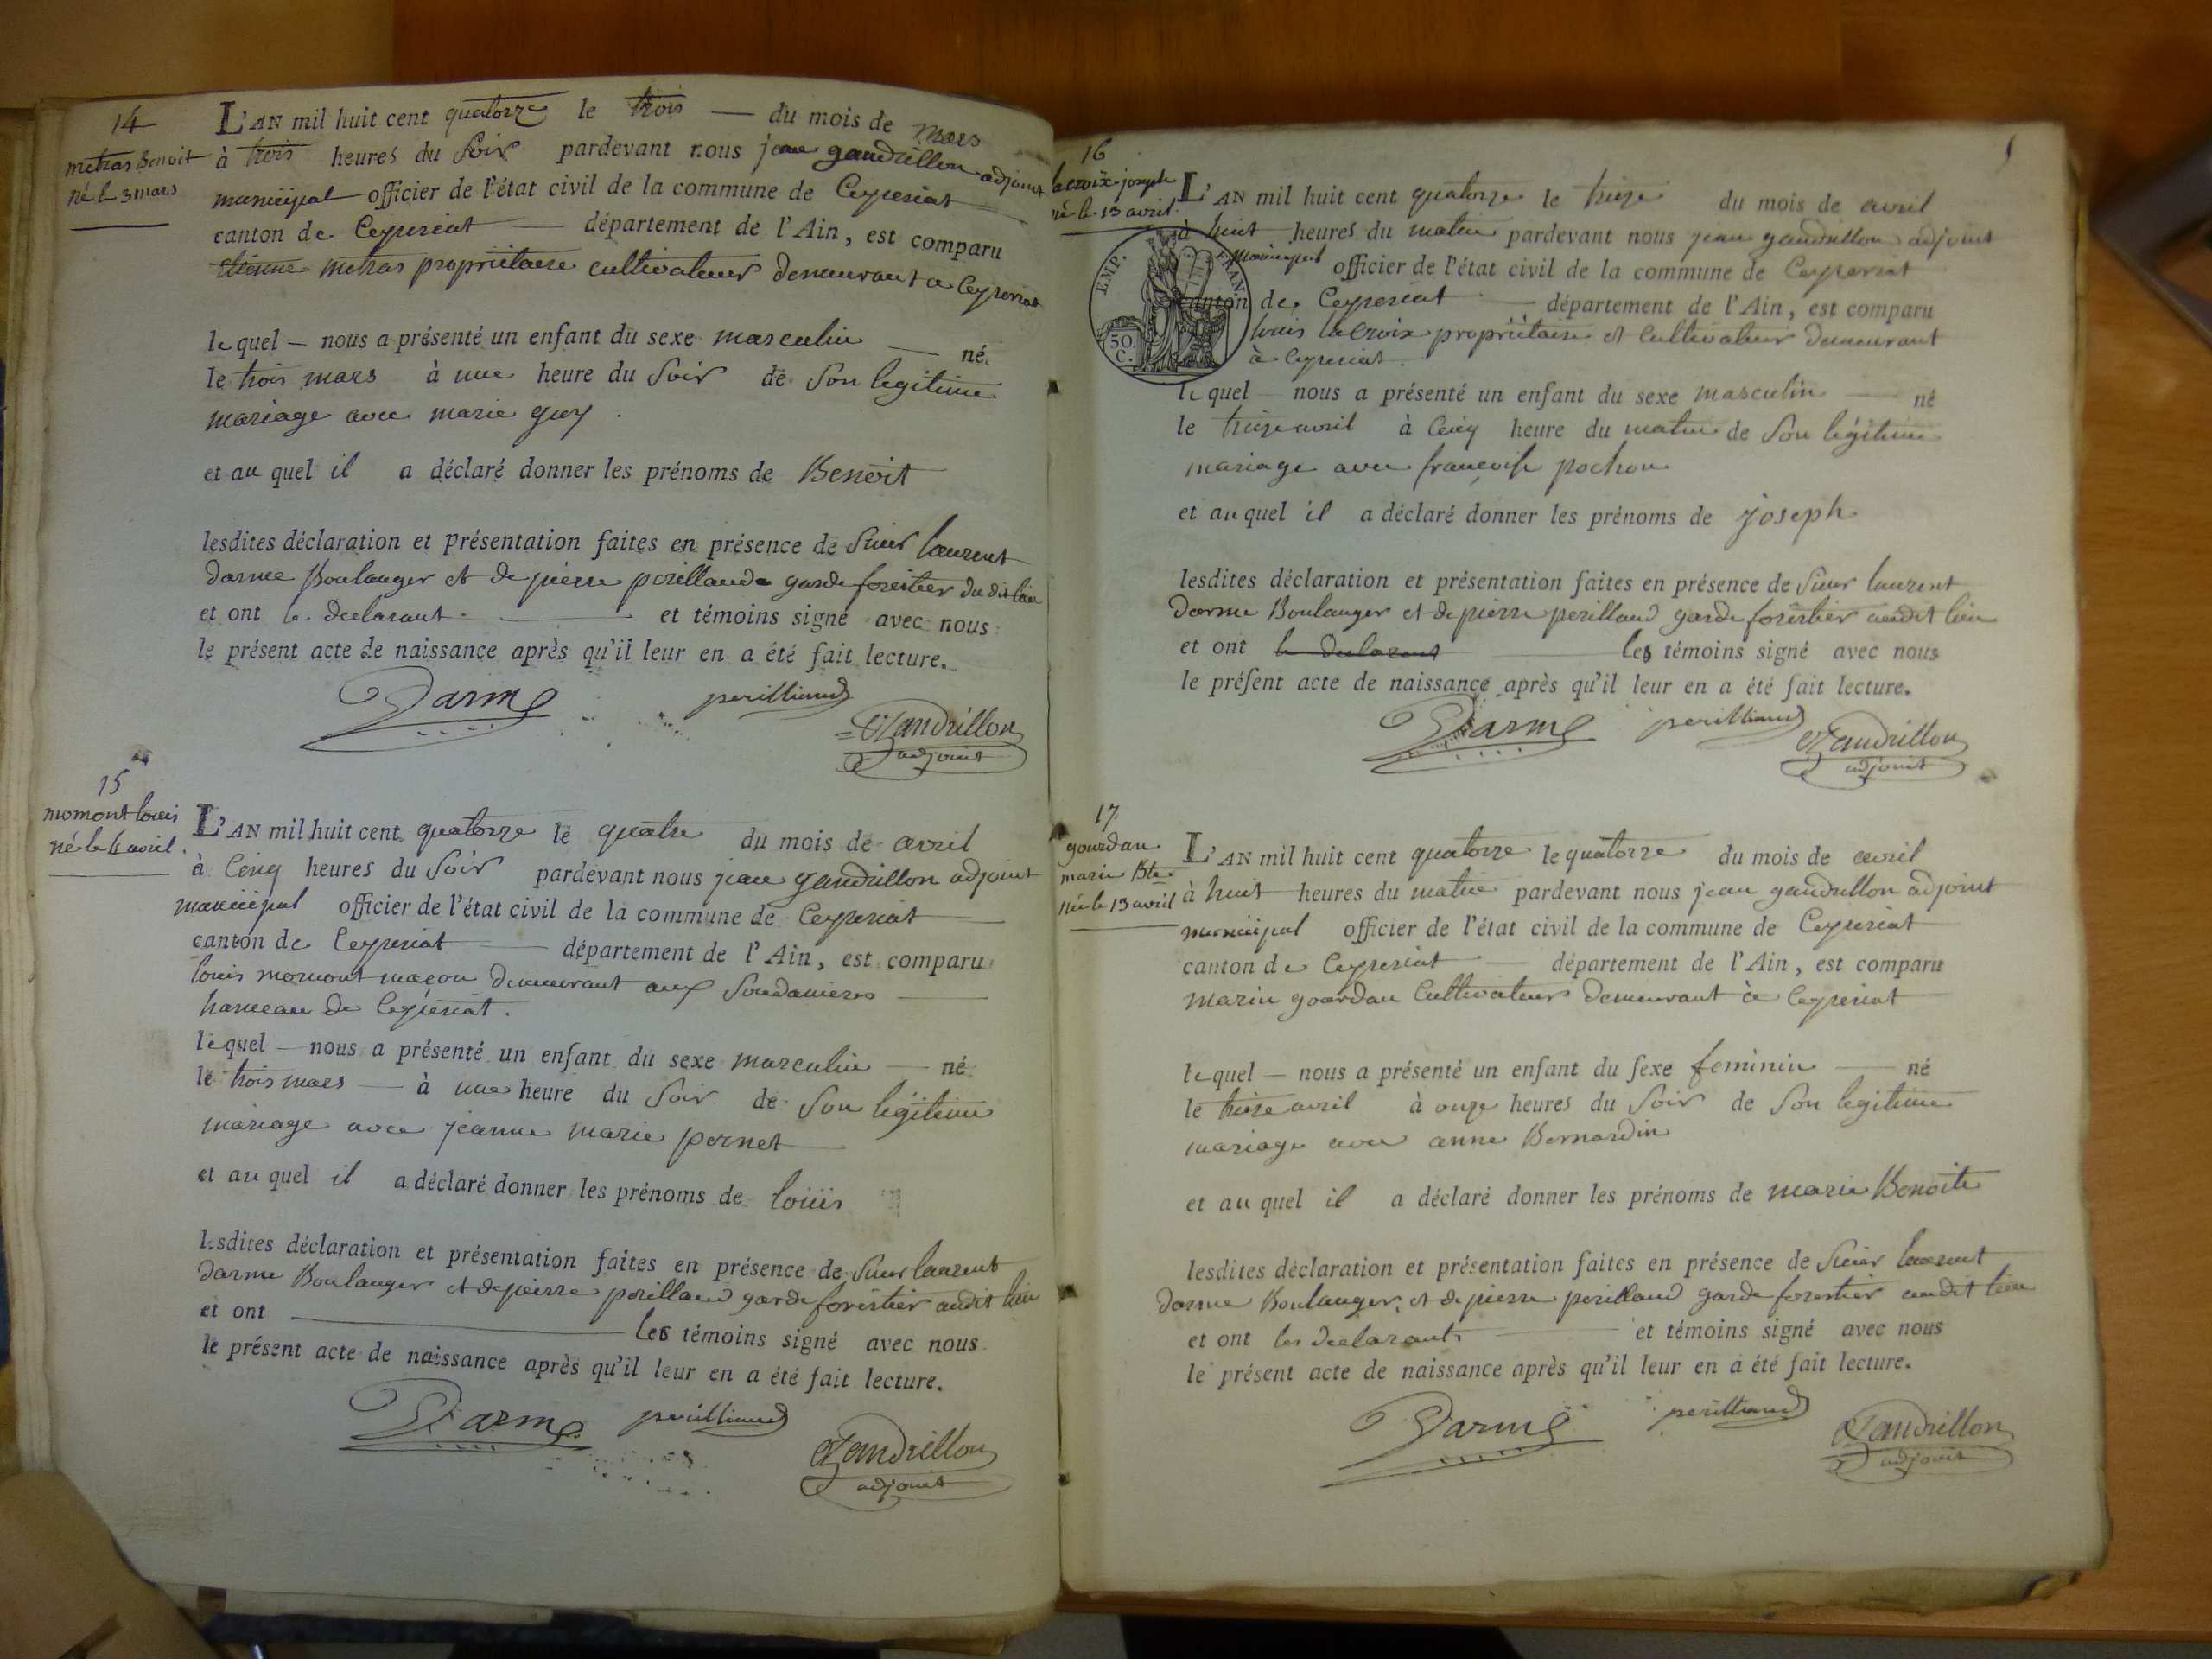 14
metras Benoit
né le 3 mars
L'AN mil huit cent quatorze le trois — du mois de mars
à trois heures du soir pardevant nous jean gaudrillon adjoint
municipal officier de l'état civil de la commune de Ceyzeriat
canton de Ceyzeriat — département de l'Ain, est comparu
etienne metras propriétaire cultivateur demeurant a Ceyzeriat
lequel — nous a présenté un enfant du sexe masculin — né
le trois mars à une heure du soir de son legitime
mariage avec marie guy.
et au quel il a déclaré donner les prénoms de Benoit
lesdites déclaration et présentation faites en présence de sieur laurent
darme Boulanger et de pierre perillaud garde forestier du dit lieu
et ont le declarant — et témoins signé avec nous
le présent acte de naissance après qu'il leur en a été fait lecture.
Darme perilliaud
Gaudrillon
adjoint
15
momont louis
né le 4 avril.
L'AN mil huit cent quatorze le quatre du mois de avril
à cinq heures du soir pardevant nous jean gaudrillon adjoint
municipal officier de l'état civil de la commune de Ceyzeriat
canton de Ceyzeriat — département de l'Ain, est comparu
louis momont maçon demeurant aux soudanieres —
hameau de Ceyzeriat.
lequel — nous a présenté un enfant du sexe masculin — né
le trois mars — à une heure du soir de son légitime
mariage avec jeanne marie pernet
et au quel il a déclaré donner les prénoms de louis
lesdites déclaration et présentation faites en présence de sieur laurent
darme Boulanger et de pierre perillaud garde forestier audit lieu
et ont — les témoins signé avec nous
le présent acte de naissance après qu'il leur en a été fait lecture.
Darme perilliaud
Gaudrillon
adjoint
16
lacroix joseph
né le 13 avril.
EMP. FRAN.
50 C.
L'AN mil huit cent quatorze le treize du mois de avril
à huit heures du matin pardevant nous jean gaudrillon adjoint
municipal officier de l'état civil de la commune de Ceyzeriat
canton de Ceyzeriat — département de l'Ain, est comparu
louis lacroix propriétaire et cultivateur demeurant
à ceyzeriat.
lequel — nous a présenté un enfant du sexe masculin — né
le treize avril à cinq heure du matin de son légitime
mariage avec françoise pochon
et au quel il a déclaré donner les prénoms de joseph
lesdites déclaration et présentation faites en présence de sieur laurent
darme Boulanger et de pierre perillaud garde forestier audit lieu
et ont le declarant — les témoins signé avec nous
le présent acte de naissance après qu'il leur en a été fait lecture.
Darme perilliaud
Gaudrillon
adjoint
17
gourdan
marie Bte
née le 13 avril
L'AN mil huit cent quatorze le quatorze du mois de avril
à huit heures du matin pardevant nous jean gaudrillon adjoint
municipal officier de l'état civil de la commune de Ceyzeriat
canton de Ceyzeriat — département de l'Ain, est comparu
marin gourdan Cultivateur demeurant à Ceyzeriat
lequel — nous a présenté un enfant du sexe feminin — né
le treize avril à onze heures du soir de son legitime
mariage avec anne Bernardin
et au quel il a déclaré donner les prénoms de marie Benoite
lesdites déclaration et présentation faites en présence de sieur laurent
darme Boulanger, et de pierre perillaud garde forestier audit lieu
et ont les declarants — et témoins signé avec nous
le présent acte de naissance après qu'il leur en a été fait lecture.
Darme perilliaud
Gaudrillon
adjoint